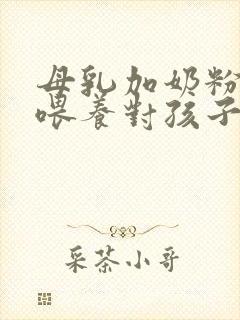 母乳加奶粉
喂養對孩子
采茶小哥